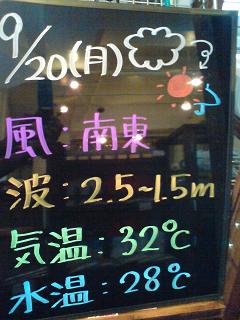 9/20(月)
風:南東
波:2.5~1.5m
気温:32℃
水温:28℃